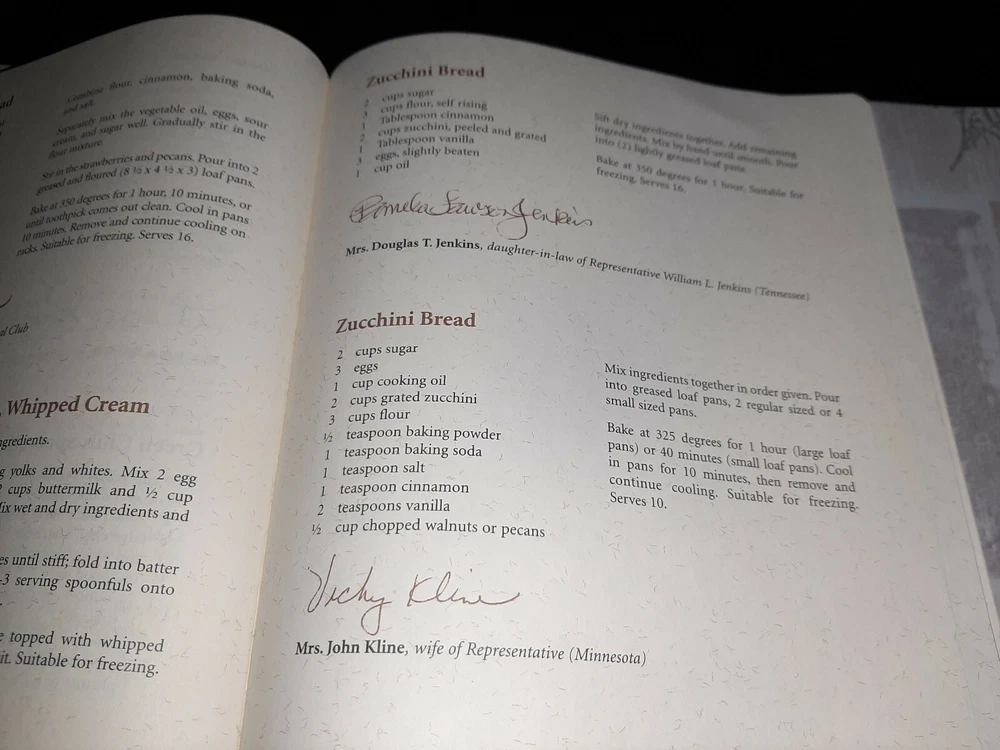 ad
Combine flour, cinnamon, baking soda,
and salt.
Separately mix the vegetable oil, eggs, sour
cream, and sugar well. Gradually stir in the
flour mixture.
Stir in the strawberries and pecans. Pour into 2
greased and floured (8 ½ x 4 ½ x 3) loaf pans.
Bake at 350 degrees for 1 hour, 10 minutes, or
until toothpick comes out clean. Cool in pans
10 minutes. Remove and continue cooling on
racks. Suitable for freezing. Serves 16.
al Club
, Whipped Cream
ngredients.
g yolks and whites. Mix 2 egg
2 cups buttermilk and ½ cup
ix wet and dry ingredients and
es until stiff; fold into batter
-3 serving spoonfuls onto
e topped with whipped
it. Suitable for freezing.
Zucchini Bread
2 cups sugar
3 cups flour, self rising
1 Tablespoon cinnamon
2 cups zucchini, peeled and grated
2 Tablespoon vanilla
3 eggs, slightly beaten
1 cup oil
Sift dry ingredients together. Add remaining
ingredients. Mix by hand until smooth. Pour
into (2) lightly greased loaf pans.
Bake at 350 degrees for 1 hour. Suitable for
freezing. Serves 16.
Pamela Lawson Jenkins
Mrs. Douglas T. Jenkins, daughter-in-law of Representative William L. Jenkins (Tennessee)
Zucchini Bread
2 cups sugar
3 eggs
1 cup cooking oil
2 cups grated zucchini
3 cups flour
½ teaspoon baking powder
1 teaspoon baking soda
1 teaspoon salt
1 teaspoon cinnamon
2 teaspoons vanilla
½ cup chopped walnuts or pecans
Mix ingredients together in order given. Pour
into greased loaf pans, 2 regular sized or 4
small sized pans.
Bake at 325 degrees for 1 hour (large loaf
pans) or 40 minutes (small loaf pans). Cool
in pans for 10 minutes, then remove and
continue cooling. Suitable for freezing.
Serves 10.
Vicky Kline
Mrs. John Kline, wife of Representative (Minnesota)